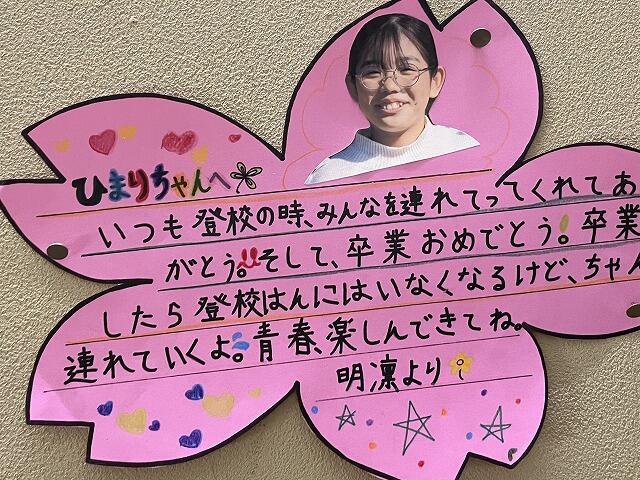 ひまりちゃんへ
いつも登校の時、みんなを連れてってくれてあ
がとう!!そして、卒業おめでとう!卒業
したら登校はんにはいなくなるけど、ちゃん
連れていくよ。青春、楽しんできてね。
明凜より